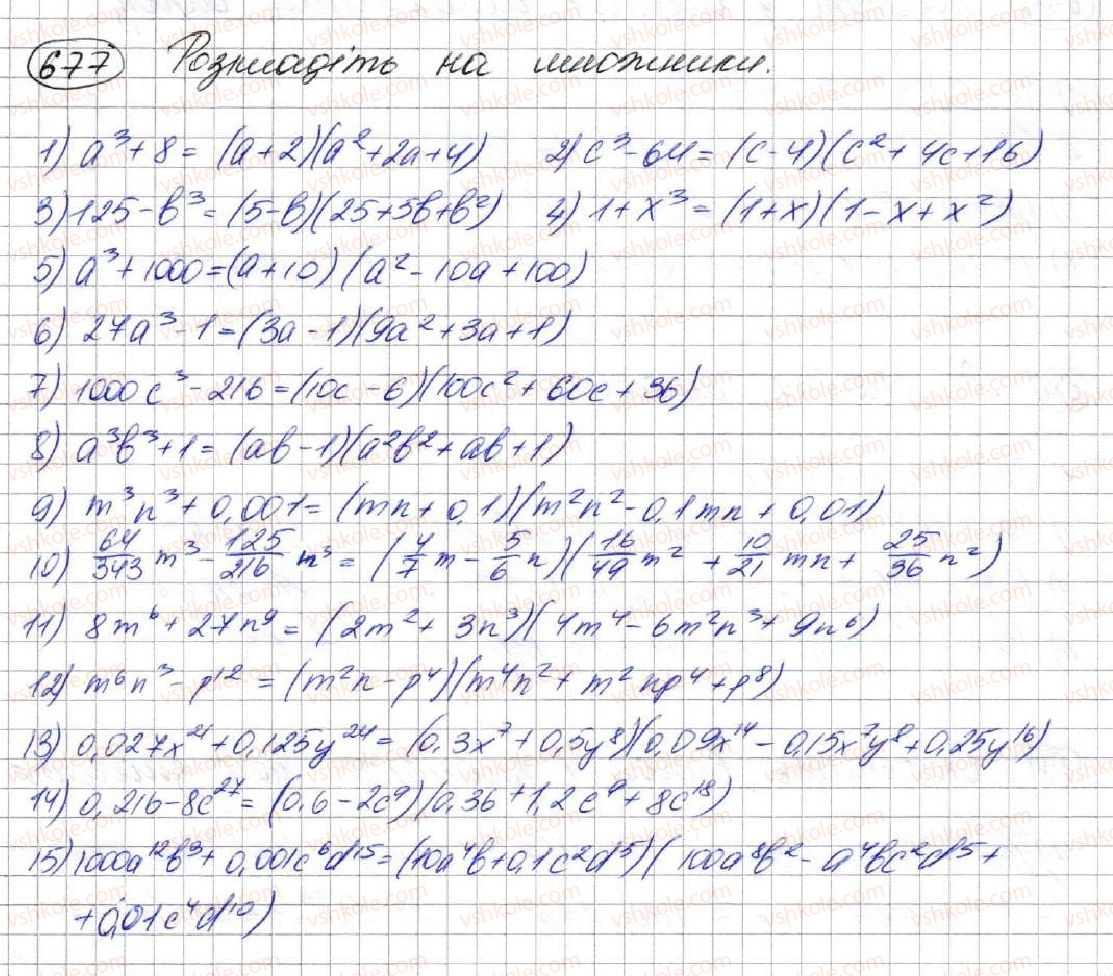 677 Розкладіть на множники.
1) a³ + 8 = (a + 2)(a² + 2a + 4) 2) c³ - 64 = (c - 4)(c² + 4c + 16)
3) 125 - b³ = (5 - b)(25 + 5b + b²) 4) 1 + x³ = (1 + x)(1 - x + x²)
5) a³ + 1000 = (a + 10)(a² - 10a + 100)
6) 27a³ - 1 = (3a - 1)(9a² + 3a + 1)
7) 1000c³ - 216 = (10c - 6)(100c² + 60c + 36)
8) a³b³ + 1 = (ab - 1)(a²b² + ab + 1)
9) m³n³ + 0,001 = (mn + 0,1)(m²n² - 0,1mn + 0,01)
10) 64/343 m³ - 125/216 n³ = (4/7 m - 5/6 n)(16/49 m² + 10/21 mn + 25/36 n²)
11) 8m⁶ + 27n⁹ = (2m² + 3n³)(4m⁴ - 6m²n³ + 9n⁶)
12) m⁶n³ - p¹² = (m²n - p⁴)(m⁴n² + m²np⁴ + p⁸)
13) 0,027x²¹ + 0,125y²⁴ = (0,3x⁷ + 0,5y⁸)(0,09x¹⁴ - 0,15x⁷y⁸ + 0,25y¹⁶)
14) 0,216 - 8c²⁷ = (0,6 - 2c⁹)(0,36 + 1,2c⁹ + 8c¹⁸)
15) 1000a¹²b³ + 0,001c⁶d¹⁵ = (10a⁴b + 0,1c²d⁵)(100a⁸b² - a⁴bc²d⁵ +
+ 0,01c⁴d¹⁰)